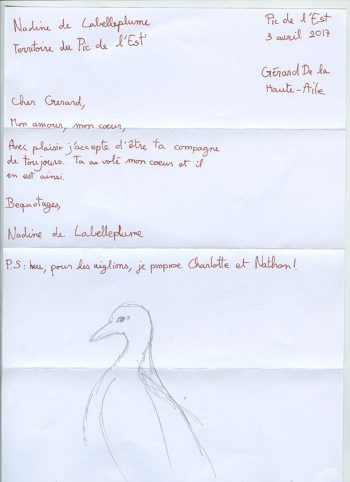 Nadine de Labelleplume
Territoire du Pic de l'Est
Pic de l'Est
3 avril 2017
Gérard De la
Haute-Aile
Cher Gérard,
Mon amour, mon cœur,
Avec plaisir j'accepte d'être ta compagne
de toujours. Tu as volé mon coeur et il
en est ainsi.
Bequotages,
Nadine de Labelleplume
P.S: heu, pour les aiglions, je propose Charlotte et Nathan!